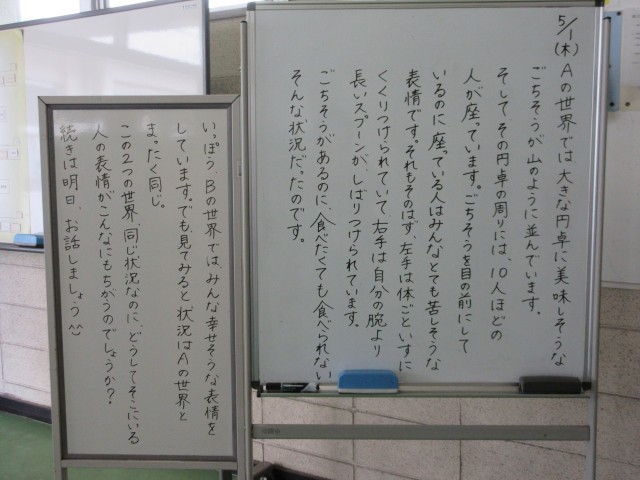 5/1(木) Aの世界では、大きな円卓に美味しそうな
ごちそうが山のように並んでいます。
そしてその円卓の周りには、10人ほどの
人が座っています。ごちそうを目の前にして
いるのに座っている人はみんなとても苦しそうな
表情です。それもそのはず、左手は体ごといすに
くくりつけられていて右手は自分の腕より
長いスプーンが、しばりつけられています。
ごちそうがあるのに、食べたくても食べられない
そんな状況だったのです。
いっぽう、Bの世界では、みんな幸せそうな表情を
しています。でも、見てみると状況はAの世界と
まったく同じ。
この2つの世界、同じ状況なのに、どうしてそこにいる
人の表情がこんなにもちがうのでしょうか？
続きは明日、お話しましょう^^